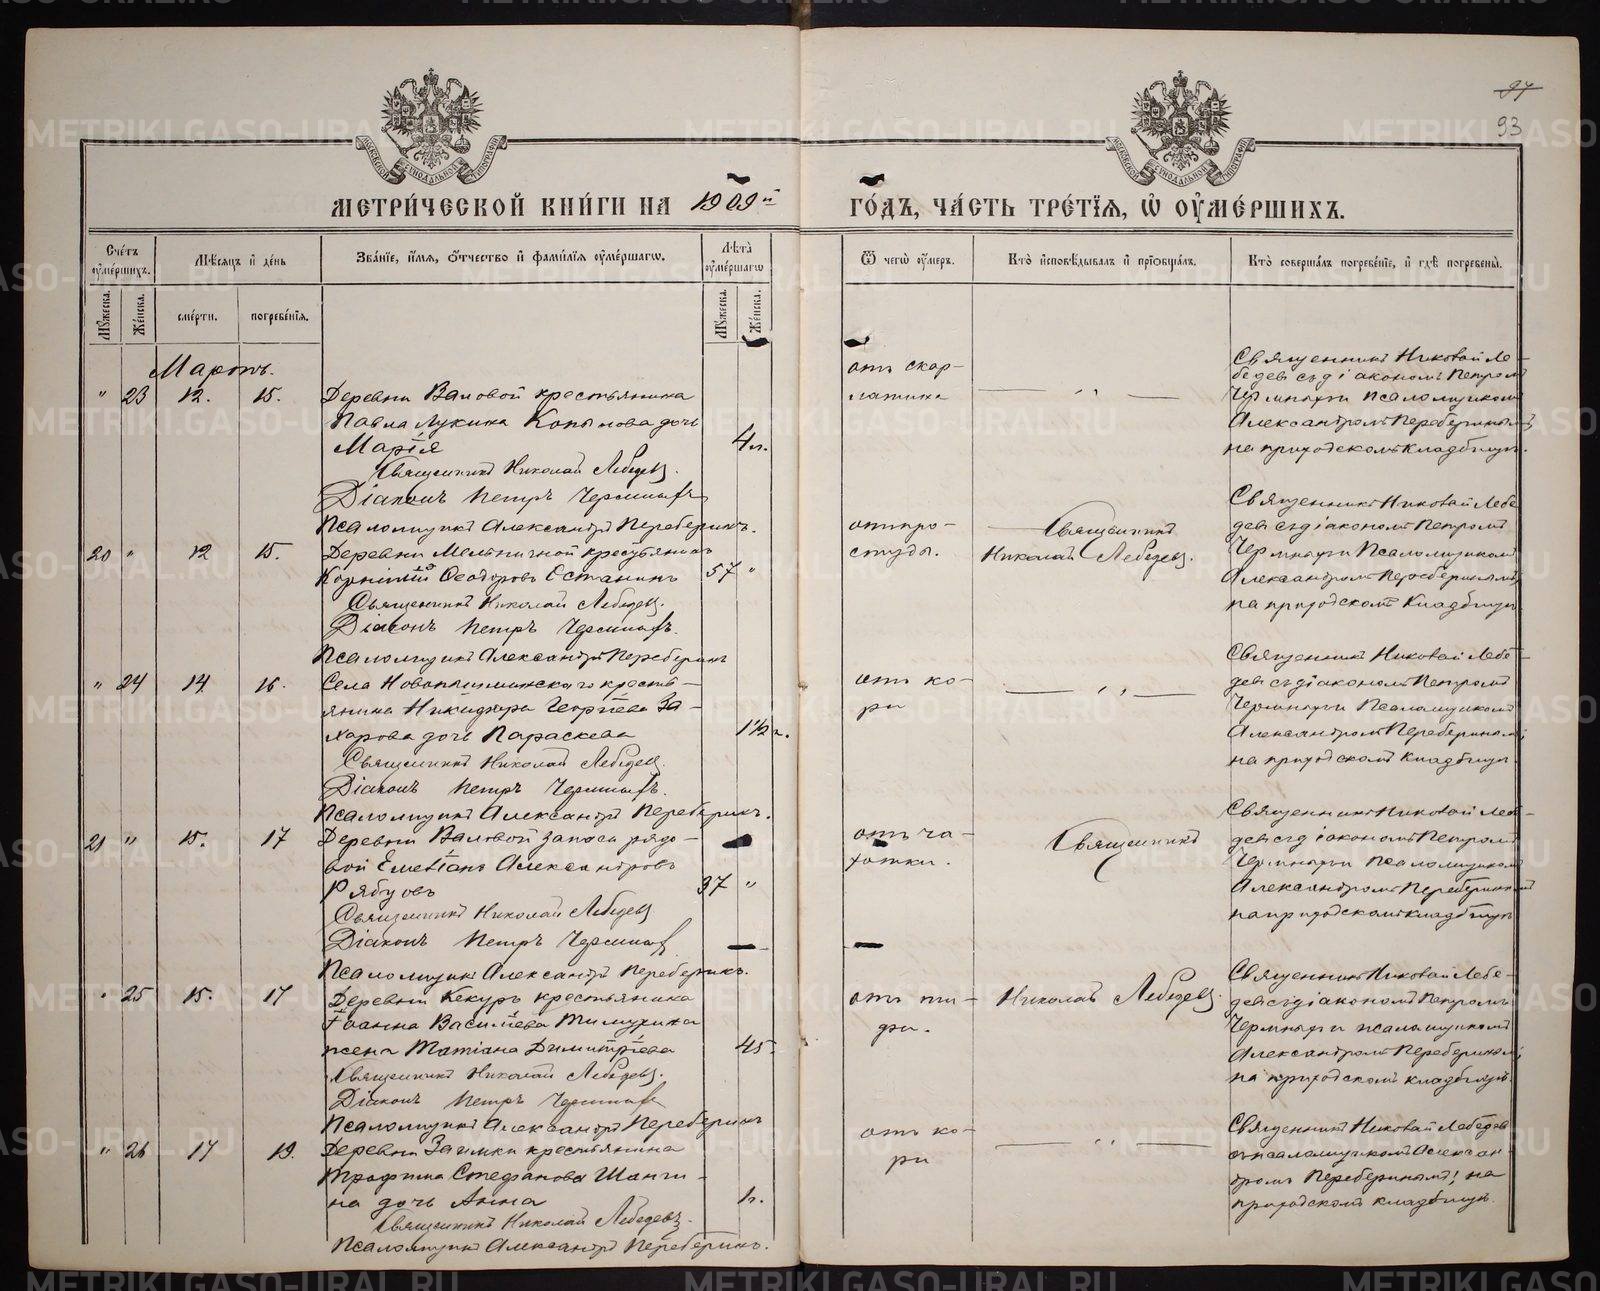 97
93
МЕТРИ́ЧЕСКОЙ КНИ́ГИ НА 1909й ГО́ДЪ, ЧА́СТЬ ТРЕ́ТІЯ, Ѡ ОУМЕ́РШИХЪ.
Сче́тъ оуме́ршихъ.
Мѣ́сяцъ и де́нь
Зва́ніе, и́мя, о́тчество и фами́лія оуме́ршагѡ.
Лѣта̀ оуме́ршагѡ
Ѿ чегѡ̀ оу́меръ.
Кто̀ исповѣ́дывалъ и пріѡбща́лъ.
Кто̀ соверша́лъ погребе́ніе, и гдѣ̀ погребены̀.
Мꙋ́жеска.
Же́нска.
сме́рти.
погребе́нія.
Мꙋ́жеска.
Же́нска.
Мартъ.
" 23 12. 15.
Деревни Валовой крестьянина
Павла Лукина Копылова дочь
Марія 4 л.
Священникъ Николай Лебедевъ.
Діаконъ Петръ
Псаломщикъ Александръ Переберинъ.
отъ скар-
латины
Священникъ Николай Ле-
бедевъ съ діакономъ Петромъ
псаломщикомъ
Александромъ Переберинымъ,
на приходскомъ кладбищѣ.
20 " 12 15.
Деревни Мельничной крестьянинъ
Корнилій Ѳеодоровъ Останинъ 57 "
Священникъ Николай Лебедевъ.
Діаконъ Петръ
Псаломщикъ Александръ Переберинъ
отъ про-
студы.
Священникъ
Николай Лебедевъ.
Священникъ Николай Лебе
девъ съ діакономъ Петромъ
псаломщикомъ
Александромъ Переберинымъ,
на приходскомъ кладбищѣ
" 24 14 16.
Села Новопышминскаго кресть-
янина Никифора Георгіева За-
харова дочь Параскева 1½ г.
Священникъ Николай Лебедевъ.
Діаконъ Петръ
Псаломщикъ Александръ Переберинъ.
отъ ко-
ри
Священникъ Николай Лебе-
девъ съ діакономъ Петромъ
псаломщикомъ
Александромъ Переберинымъ,
на приходскомъ кладбищѣ.
21 " 15. 17
Деревни Валовой запаса рядо-
вой Емеліанъ Александровъ
Рябовъ 37 "
Священникъ Николай Лебедевъ
Діаконъ Петръ
Псаломщикъ Александръ Переберинъ.
отъ ча-
хотки.
Священникъ
Священникъ Николай Лебе-
девъ съ діакономъ Петромъ
псаломщикомъ
Александромъ Переберинымъ
на приходскомъ кладбищѣ
" 25 15. 17
Деревни Кекуръ крестьянина
Іоанна Васильева
жена Татіана Димитріева 45.
Священникъ Николай Лебедевъ.
Діаконъ Петръ
Псаломщикъ Александръ Переберинъ
отъ ти-
фа.
Николай Лебедевъ.
Священникъ Николай Лебе-
девъ съ діакономъ Петромъ
псаломщикомъ
Александромъ Переберинымъ,
на приходскомъ кладбищѣ.
" 26 17 19.
Деревни Заимки крестьянина
Трофима Стефанова Шанги-
на дочь Анна 1 г.
Священникъ Николай Лебедевъ.
Псаломщикъ Александръ Переберинъ.
отъ ко-
ри
Священникъ Николай Лебедевъ
съ псаломщикомъ Алексан
дромъ Переберинымъ, на
приходскомъ кладбищѣ.
METRIKI.GASO-URAL.RU